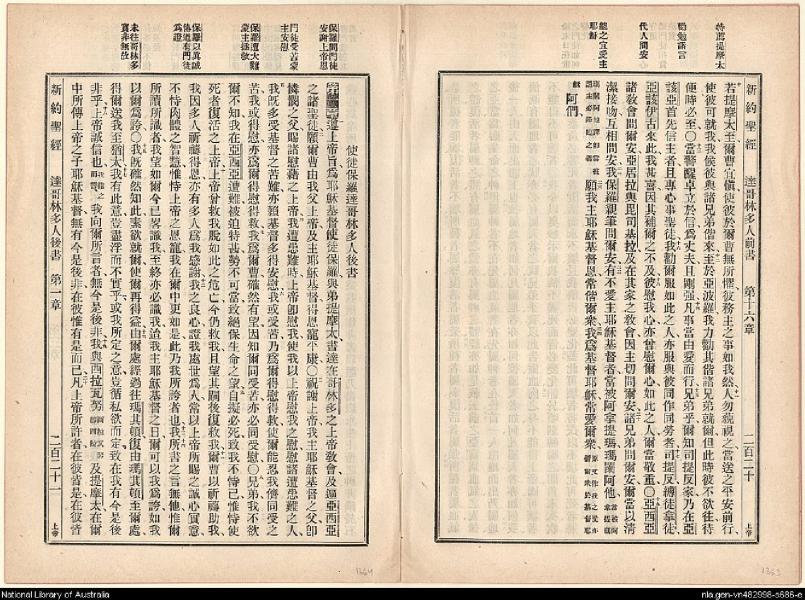 特薦提摩太
勸勉諸言
代人問安
龍之宜愛主耶穌
新約聖經　達哥林多人前書　第十六章　二百二十　上帝
若提摩太至爾曹宜愼使彼於爾曹無所懼彼務主之事如我然人勿藐視之當送之平安前行
使彼可就我我俟彼與諸兄弟偕來至於亞波羅我力勸其偕諸兄弟就爾但此時彼不欲往待
便時必至○當警醒卓立於信爲丈夫且剛强凡事當由愛而行兄弟乎爾知司提反家乃在亞
該亞首先信主者且專心事聖徒我勸爾服如此之人亦服與彼同作同勞者司提反縛徒拿徒
亞該伊古來此我甚喜因其補爾之不及彼慰我心亦曾慰爾心如此之人爾當敬重○亞西亞
諸敎會問爾安亞居拉與毘司基拉及在其家之敎會因主切問爾安諸兄弟問爾安爾當以淸
潔接吻互相問安我保羅親筆問爾安有不愛主耶穌基督者當被阿拿提瑪瑪蘭阿他
願我主耶穌基督恩常偕爾衆我爲基督耶穌常愛爾衆
阿們
保羅問門徒安謝上帝恩
門徒受苦蒙主安慰
保羅遭大難蒙主拯救
保羅以眞誠傳道有門徒爲證
未往哥林多實非無故
使徒保羅達哥林多人後書
遵上帝旨爲耶穌基督使徒保羅與弟提摩太書達在哥林多之上帝敎會及遍亞西亞
之諸聖徒願爾曹由我父上帝及主耶穌基督得恩寵平康○祝謝上帝我主耶穌基督之父卽
憐憫之父賜諸慰藉之上帝我遭患難時上帝卽慰我使我以上帝慰我之慰慰諸遭患難之人
我旣多受基督之苦難亦賴基督多得安慰我或受苦乃爲爾得慰得救使爾能忍我儕同受之
苦我或得慰亦爲爾得慰得救我爲爾曹確然有望因知爾同受苦亦必同受慰○兄弟我不欲
爾不知我在亞西亞遭難被迫特甚勢不可當致絕保生命之望自擬必死致我不恃己惟恃使
死者復活之上帝上帝曾救我脫如此之危亡今仍救我且望其嗣後復救我爾曹以祈禱助我
我因多人祈禱得恩亦有多人爲我感謝我之良心證我處世爲人常以上帝所賜之誠心實意
不恃肉體之智慧惟恃上帝之恩寵我在爾中更如是此乃我所誇者也我所書之言無他惟爾
所讀所識者我望如爾今已畧識我至終亦必識我迨我主耶穌基督之日爾可以我爲誇如我
以爾爲誇○我旣確然知此素欲就爾使爾再得益由爾處經過往瑪其頓復由瑪其頓至爾處
得爾送我至猶太我有此意豈盡浮而不實乎或我所定之意豈循私欲而定致在我有今是後
非乎上帝誠信也我向爾所言者無今是後非我與西拉瓦努及提摩太在爾
中所傳上帝之子耶穌基督無有今是後非在彼惟有是而已凡上帝所許者在彼皆是在彼皆
新約聖經　達哥林多人後書　第一章　二百二十一　上帝
1364
1363
National Library of Australia
nla.gen-vn482998-s686-e